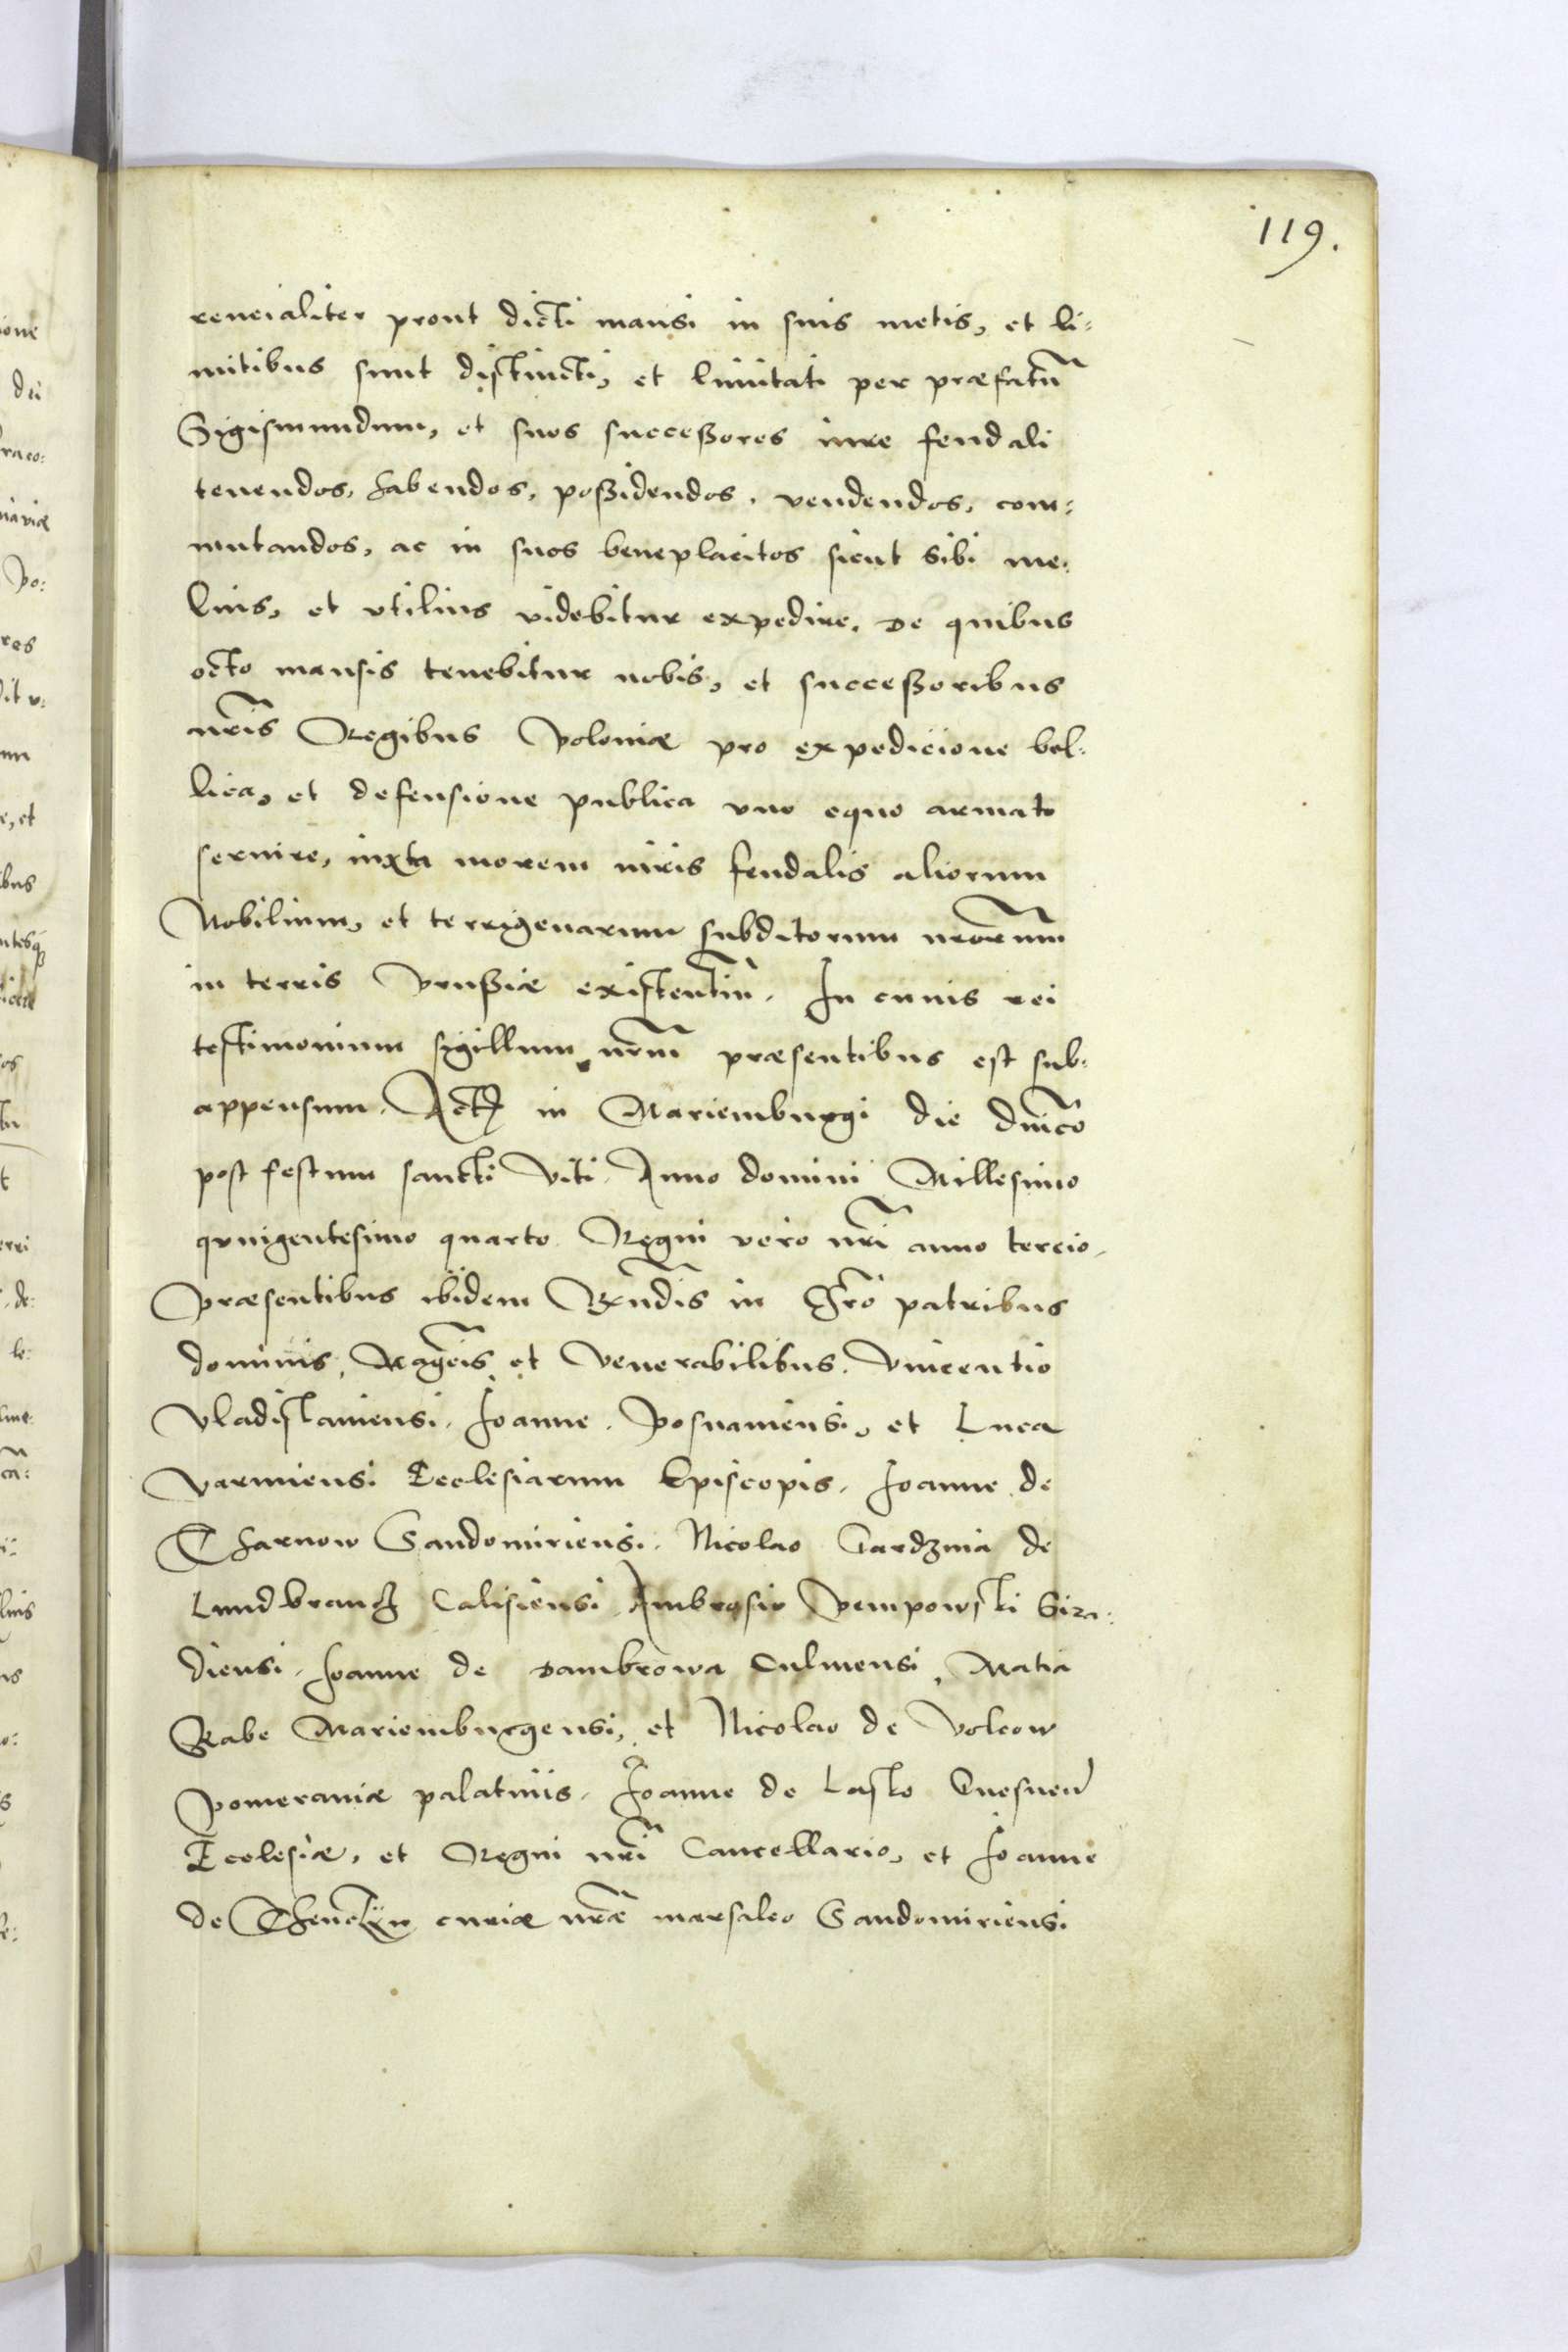 119.
renciàliter prout dicti mansi in suis metis, et li:
mitibus sunt distincti, et limitati per præfatũ
Sigismundum, et suos succeßores iure feudali
tenendos, habendos, poßidendos, vendendos, com:
mutandos, ac in suos beneplacitos sicut sibi me:
lius, et vtilius videbitur expedire. De quibus
octo mansis tenebitur nobis, et succeßoribus
nr̃is Regibus Poloniæ pro expedicione bel:
lica, et defensione publica vno equo armato
seruire, iuxta morem iuris feudalis aliorum
Nobilium, et terrigenarum subditorum nr̃orum
in terris Prußiæ existentiũ. In cuius rei
testimonium sigillum nr̃um præsentibus est sub:
appensum. Act in Mariemburgi die dñico
post festum sancti Viti. Anno domini Millesimo
quingentesimo quarto Regni vero nr̃i anno tercio.
Præsentibus ibidem Rx̃ndis in Chr̃o patribus
dominis, Mag̃cis et Venerabilibus. Vincentio
Vladislauiensi. Joanne. Posnaniensi, et Luca
Varmiensi Ecclesiarum Episcopis. Joanne de
Tharnow Sandomiriensi. Nicolao Gardzina de
Lundbrancz Calisiensi Ambrosio Pempowski Sira:
diensi. Joanne de Dambrowa Culmensi, Matia
Rabe Mariemburgensi, et Nicolao de Volcow
Pomeraniæ palatinis. Joanne de Lasko Gnesnen̄
Ecclesiæ, et Regni nr̃i Cancellario, et Joanne
de Thenczyn curiæ nr̃æ marsalco Sandomiriensi